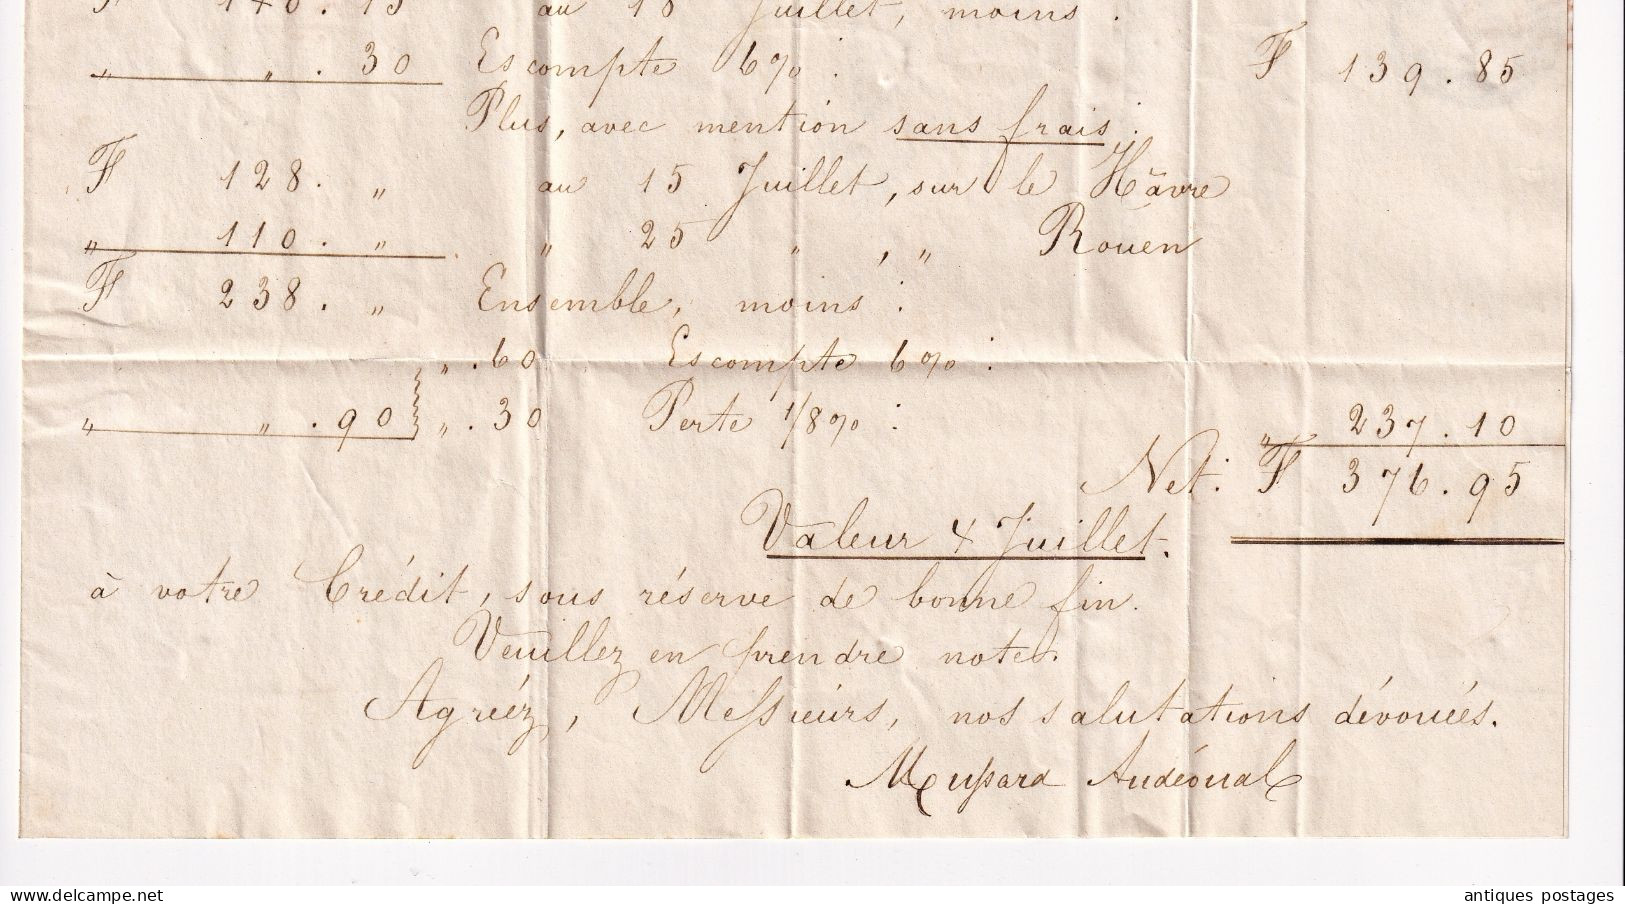 F 140. 15 au 18 Juillet, moins :
" " . 30 Escompte 6% : F 139. 85
Plus, avec mention sans frais :
F 128. " au 15 Juillet, sur le Hâvre
" 110. " " 25 " , " Rouen
F 238. " Ensemble, moins :
" . 60 Escompte 6% :
" " . 90 " . 30 Perte 1/8% : " 237. 10
Net : F 376. 95
Valeur 4 Juillet.
à votre Crédit, sous réserve de bonne fin.
Veuillez en prendre note.
Agréez, Messieurs, nos salutations dévouées.
Audéoual
antiques postages
https://www.delcampe.net